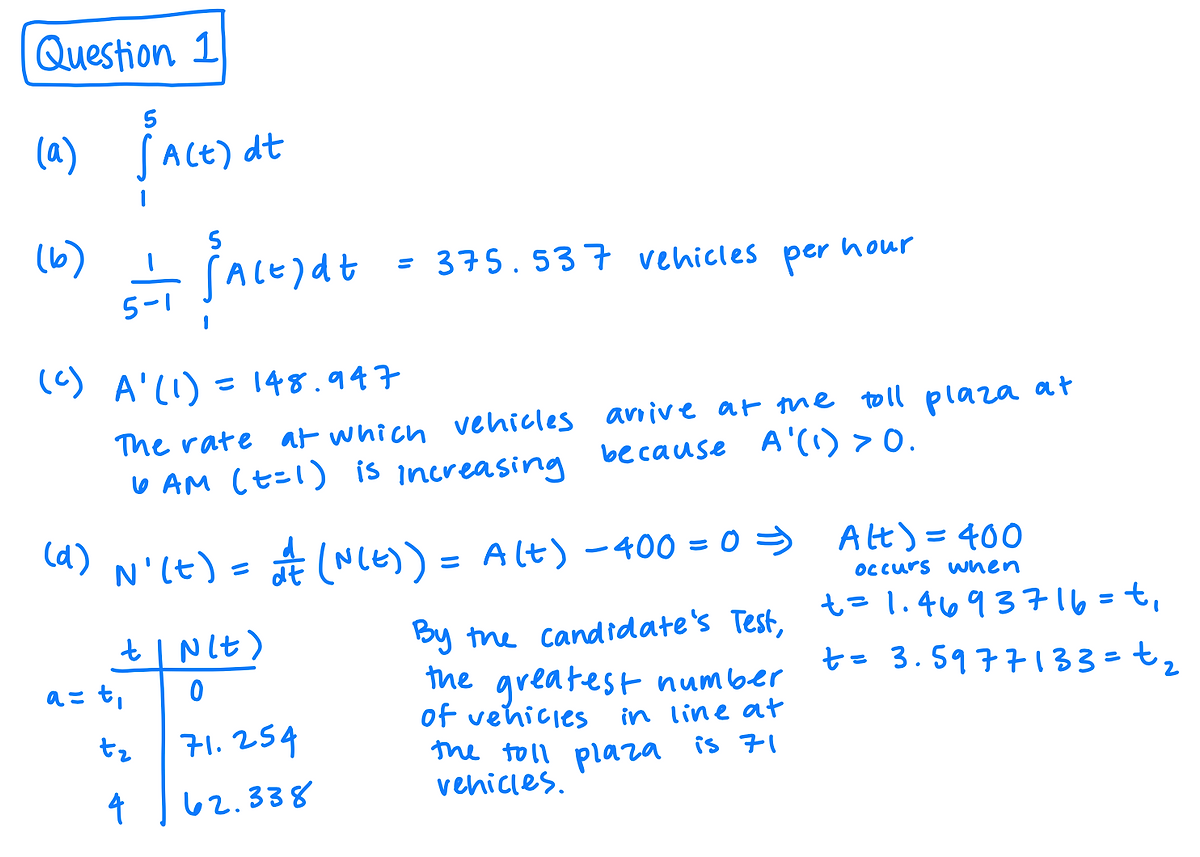 Question 1
(a) ∫₁⁵ A(t) dt
(b) 1/(5-1) ∫₁⁵ A(t) dt = 375.537 vehicles per hour
(c) A'(1) = 148.947
The rate at which vehicles arrive at the toll plaza at
6 AM (t=1) is increasing because A'(1) > 0.
(d) N'(t) = d/dt (N(t)) = A(t) - 400 = 0 ⇒ A(t) = 400
occurs when
t = 1.4693716 = t₁
t = 3.5977133 = t₂
t | N(t)
a = t₁ | 0
t₂ | 71.254
4 | 62.338
By the candidate's Test,
the greatest number
of vehicles in line at
the toll plaza is 71
vehicles.